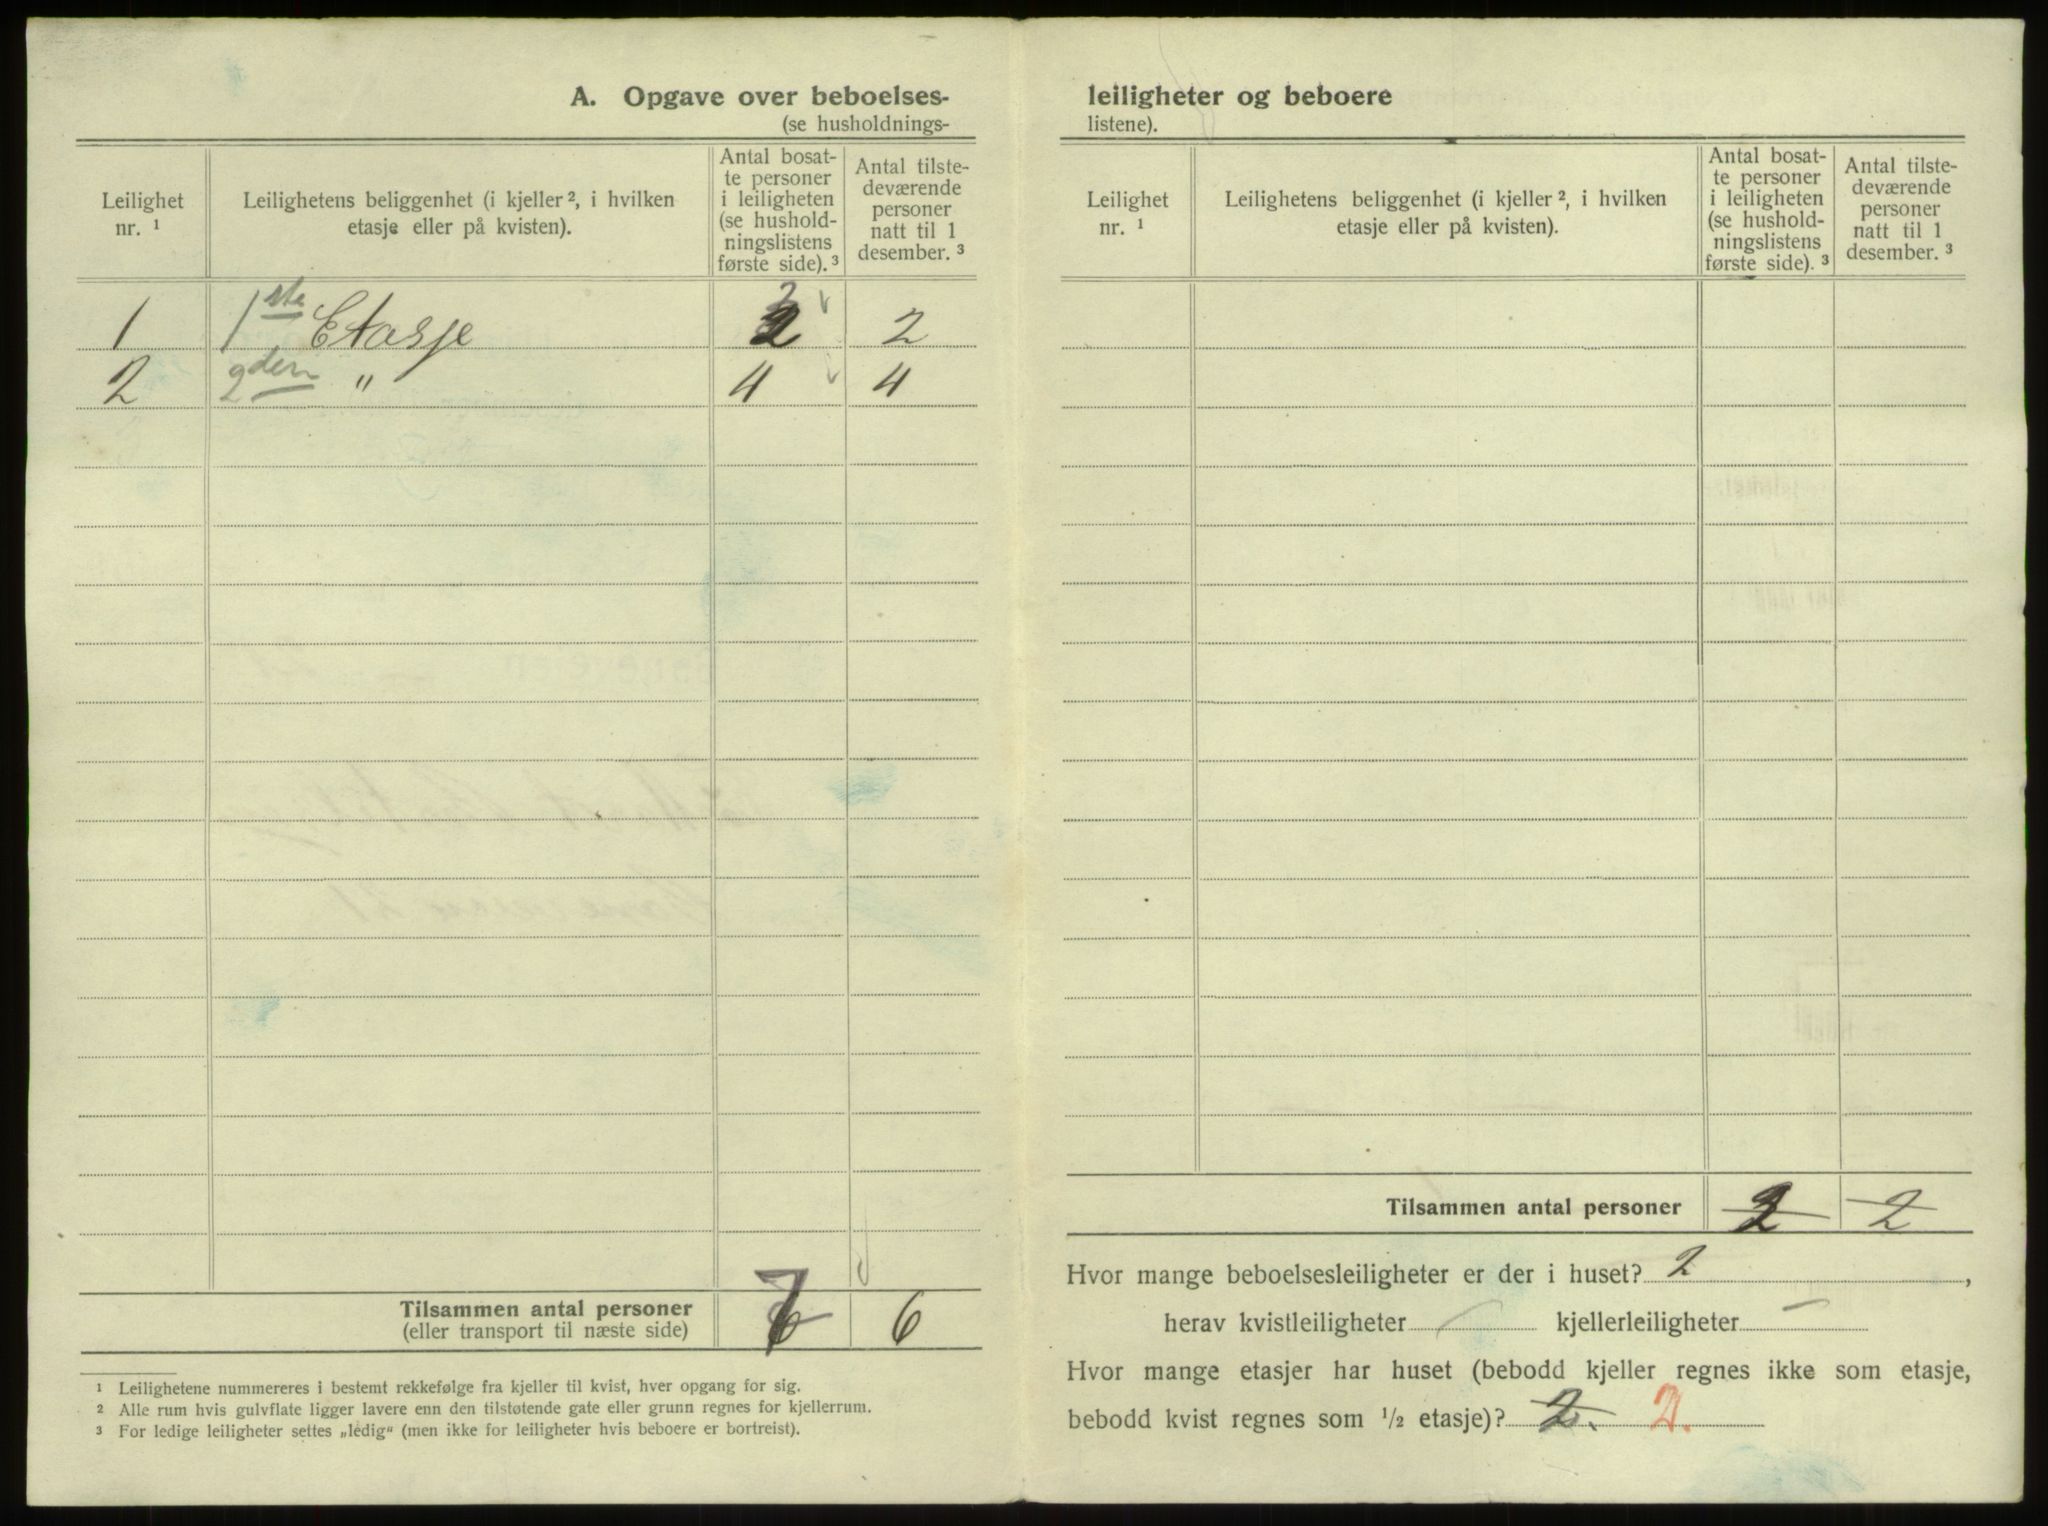 A. Opgave over beboelses-
(se husholdnings-
Leilighet
nr. ¹
Leilighetens beliggenhet (i kjeller ², i hvilken
etasje eller på kvisten).
Antal bosat-
te personer
i leiligheten
(se hushold-
ningslistens
første side). ³
Antal tilste-
deværende
personer
natt til 1
desember. ³
1 1ste Etasje 2 2
2 2den " 4 4
Tilsammen antal personer
(eller transport til næste side)
6 6
¹ Leilighetene nummereres i bestemt rekkefølge fra kjeller til kvist, hver opgang for sig.
² Alle rum hvis gulvflate ligger lavere enn den tilstøtende gate eller grunn regnes for kjellerrum.
³ For ledige leiligheter settes „ledig" (men ikke for leiligheter hvis beboere er bortreist).
leiligheter og beboere
listene).
Leilighet
nr. ¹
Leilighetens beliggenhet (i kjeller ², i hvilken
etasje eller på kvisten).
Antal bosat-
te personer
i leiligheten
(se hushold-
ningslistens
første side). ³
Antal tilste-
deværende
personer
natt til 1
desember. ³
Tilsammen antal personer 2 2
Hvor mange beboelsesleiligheter er der i huset? 2,
herav kvistleiligheter — kjellerleiligheter —
Hvor mange etasjer har huset (bebodd kjeller regnes ikke som etasje,
bebodd kvist regnes som ½ etasje)? 2. 2.